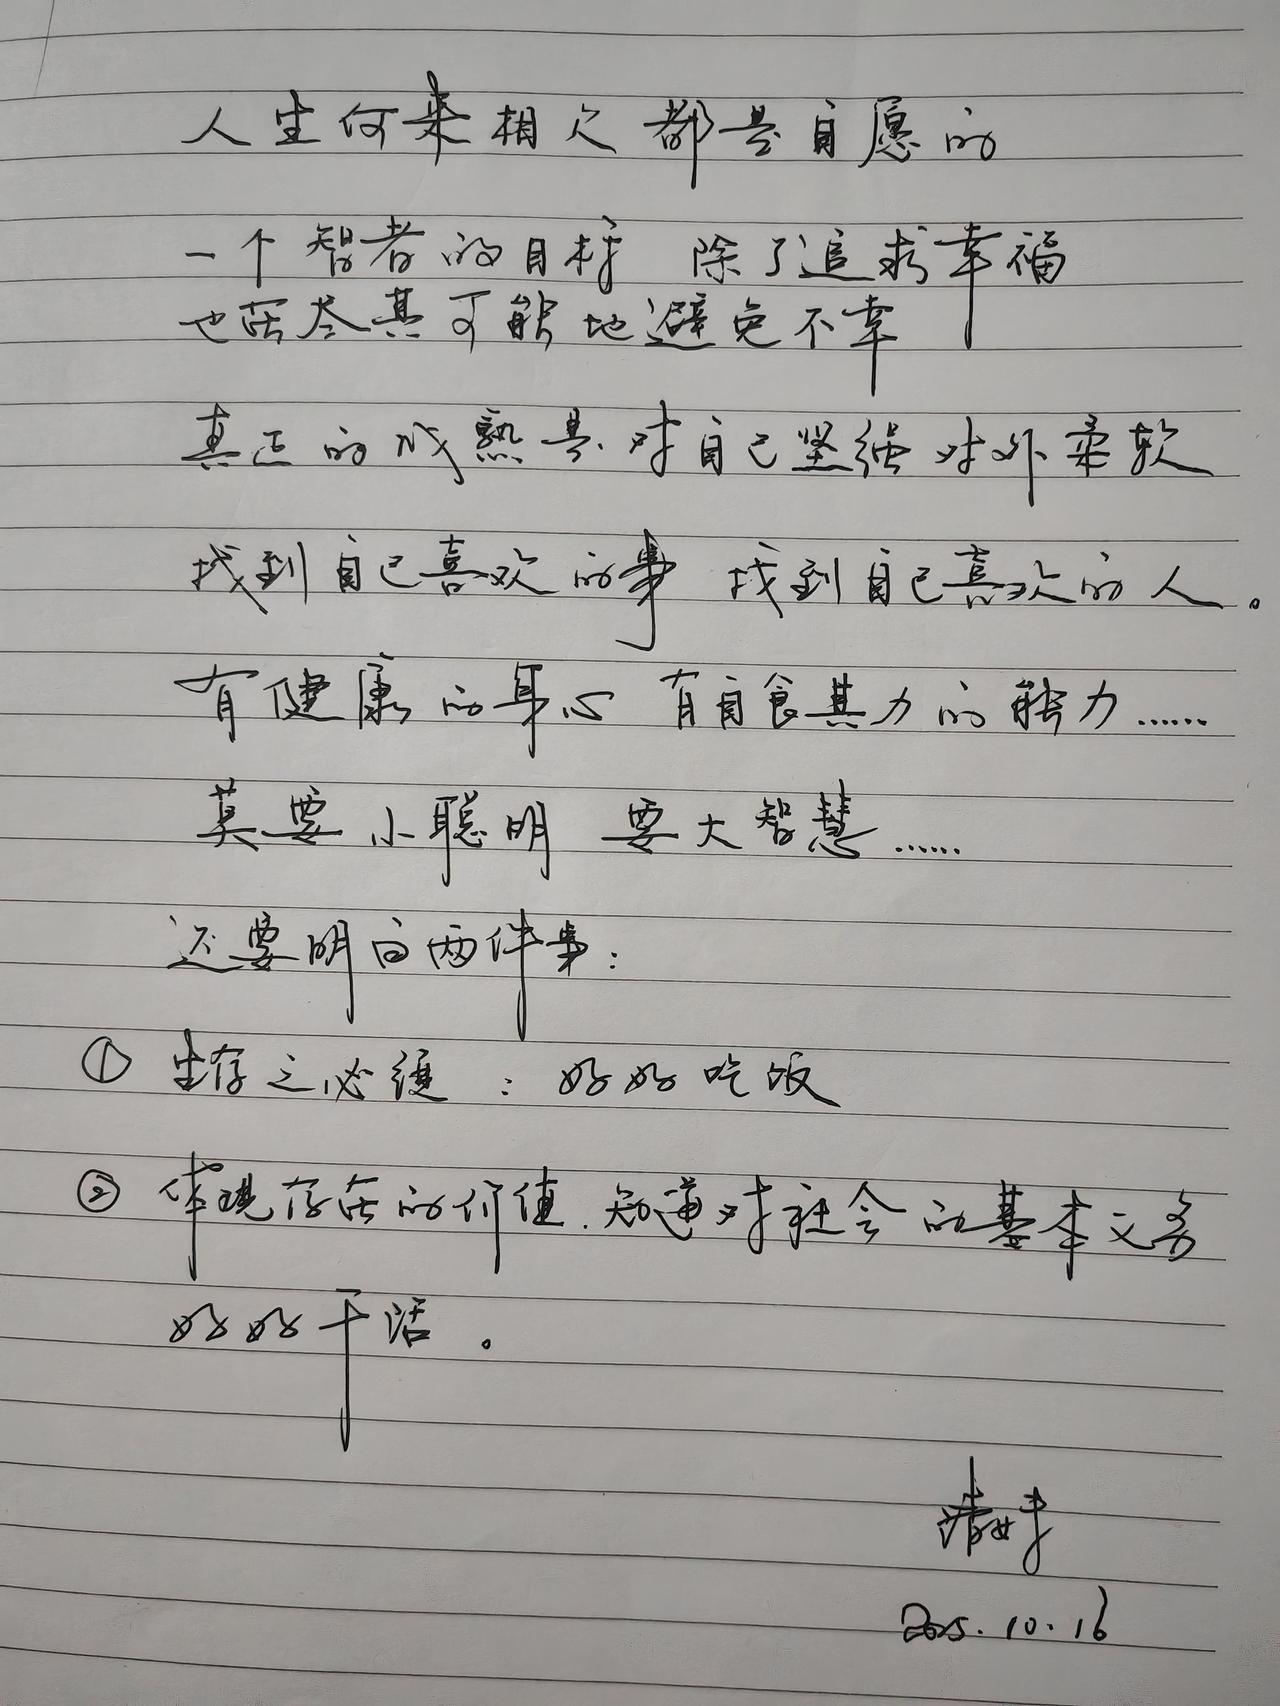 人生何来相欠 都是自愿的
一个智者的目标 除了追求幸福
也在尽其可能地避免不幸
真正的成熟是对自己坚强 对外柔软
找到自己喜欢的事 找到自己喜欢的人。
有健康的身心 有自食其力的能力……
莫要小聪明 要大智慧……
还要明白两件事：
① 生存之必须：好好吃饭
② 体现存在的价值.知道对社会的基本义务
好好干活。
2025.10.16